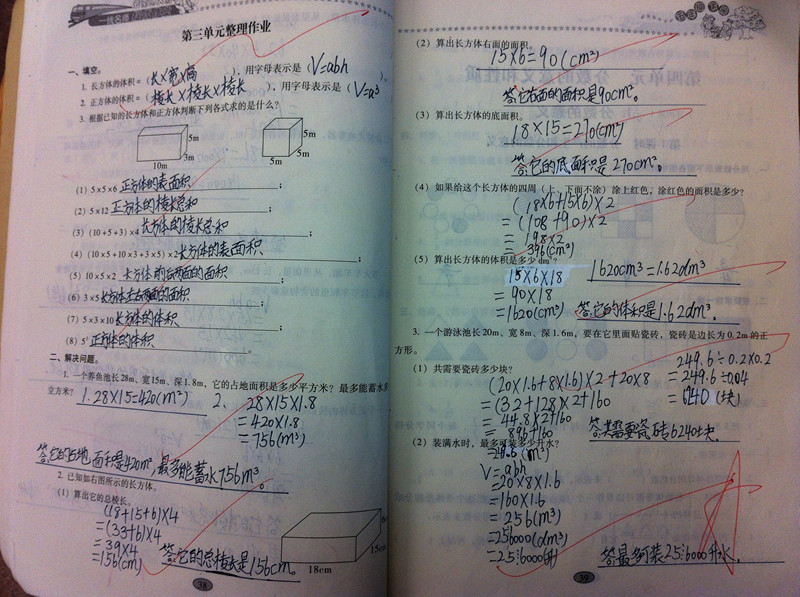 第三单元整理作业
一、填空。
1. 长方体的体积=(长×宽×高),用字母表示是(V=abh)。
2. 正方体的体积=(棱长×棱长×棱长),用字母表示是(V=a³)。
3. 根据已知的长方体和正方体判断下列各式求的是什么?
5m
3m
10m
5m
5m
5m
(1) 5×5×6 正方体的表面积;
(2) 5×12 正方体的棱长总和;
(3) (10+5+3)×4 长方体的棱长总和;
(4) (10×5+10×3+3×5)×2 长方体的表面积;
(5) 10×5×2 长方体前后两面的面积;
(6) 3×5 长方体左右两面的面积;
(7) 5×3×10 长方体的体积;
(8) 5³ 正方体的体积。
二、解决问题。
1. 一个养鱼池长28m、宽15m、深1.8m,它的占地面积是多少平方米?最多能蓄水多
立方米?
1. 28×15=420(m²)
2、 28×15×1.8
=420×1.8
=756(m³)
答:它的占地面积是420m²,最多能蓄水756m³。
2. 已知如右图所示的长方体。
(1) 算出它的总棱长。
(18+15+6)×4
=(33+6)×4
=39×4
=156(cm)
答:它的总棱长是156cm。
15cm
18cm
38
(2) 算出长方体右面的面积。
15×6=90(cm²)
答:右面的面积是90cm²。
(3) 算出长方体的底面积。
18×15=270(cm²)
答:它的底面积是270cm²。
(4) 如果给这个长方体的四周(上、下面不涂)涂上红色,涂红色的面积是多少?
(18×6+15×6)×2
=(108+90)×2
=198×2
=396(cm²)
(5) 算出长方体的体积是多少dm³?
15×6×18
=90×18
=1620(cm³)
1620cm³=1.62dm³
答:它的体积是1.62dm³。
3. 一个游泳池长20m、宽8m、深1.6m,要在它里面贴瓷砖,瓷砖是边长为0.2m的正
方形。
(1) 共需要瓷砖多少块?
(20×1.6+8×1.6)×2+20×8
=(32+12.8)×2+160
=44.8×2+160
=89.6+160
=249.6(m²)
249.6÷0.2×0.2
=249.6÷0.04
=6240(块)
答:共需要瓷砖6240块。
(2) 装满水时,最多可装多少升水?
V=abh
=20×8×1.6
=160×1.6
=256(m³)
=256000(dm³)
=256000升
答:最多可装256000升水。
39